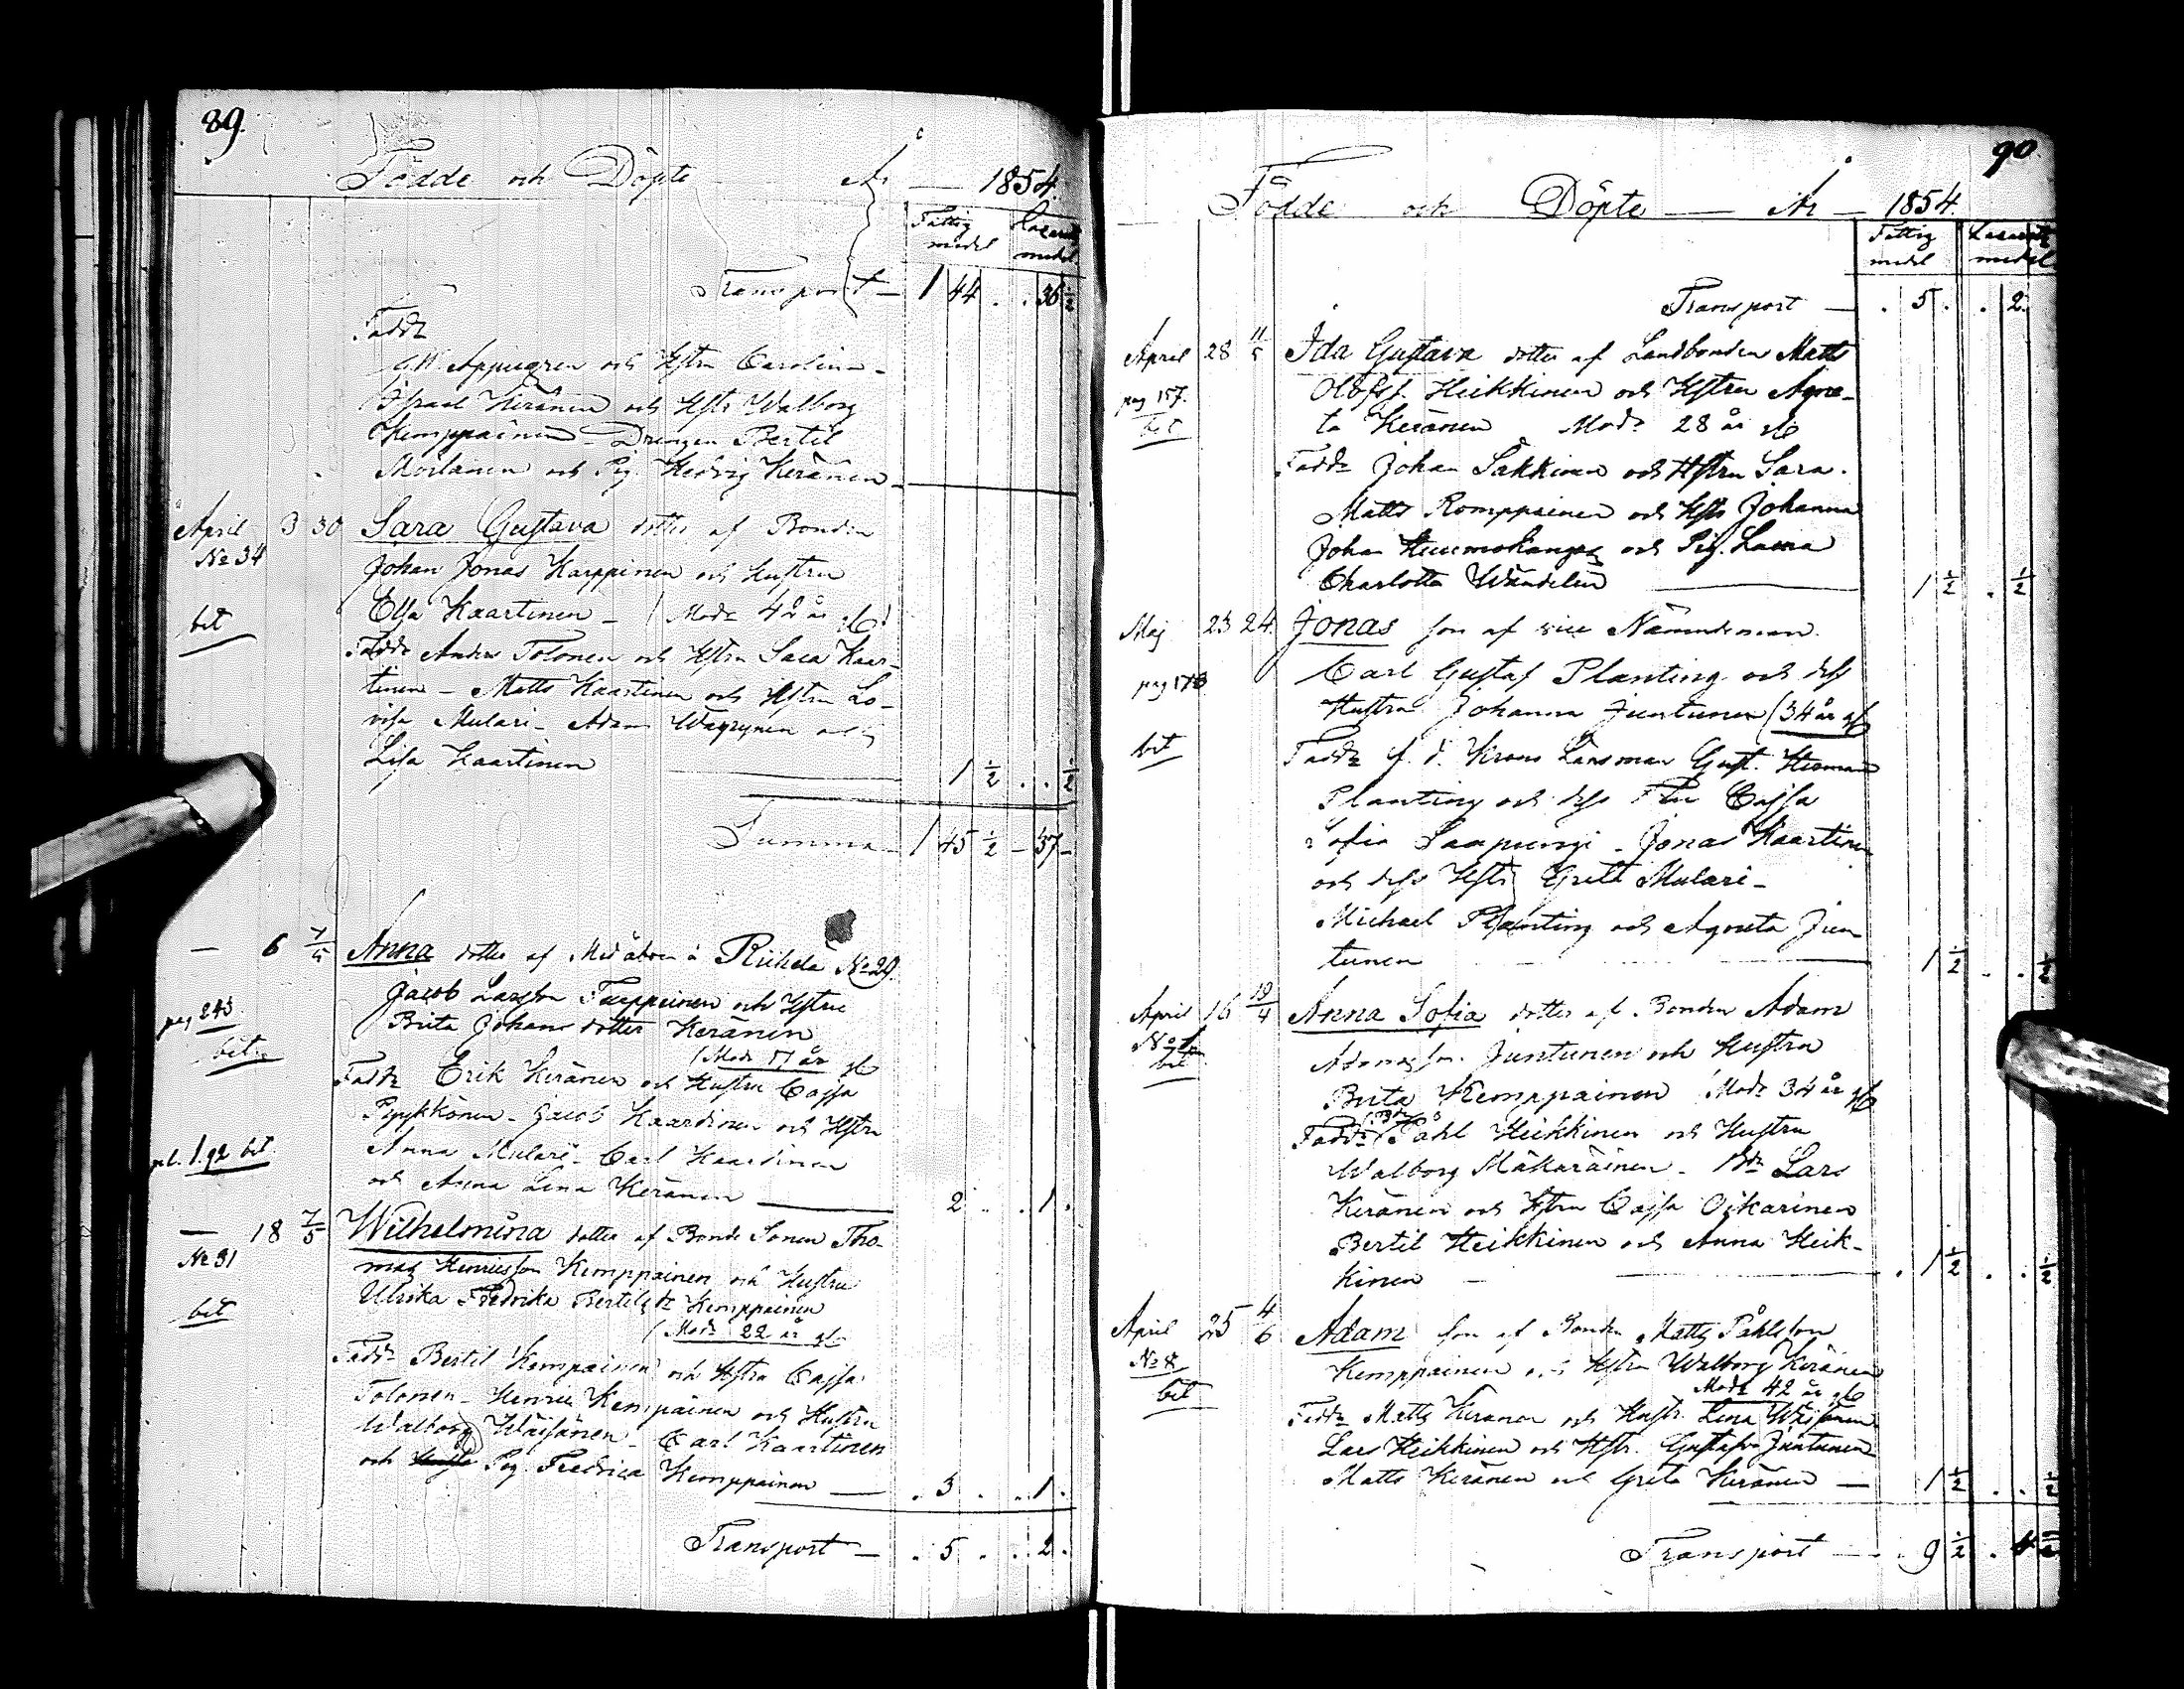 89.
Födde och Döpte År 1854.
Fattig medel Lazaretts medel
Transport — 1 44 . . 36 ½
Faddr
G.W. Appelgren och Hstru Carolina –
Israel Keränen och Hstr Walborg
Kemppainen – Drengen Bertil
Moilanen och Pig. Hedvig Keränen –
April 3 30 Sara Gustava dotter af Bonden
No 34
Johan Jonas Karppinen och Hustru
bet
Elsa Kaartinen – (Modr 42 år gl)
Faddr Anders Tolonen och Hstru Sara Kaar-
tinen – Matts Kaartinen och Hstru Lo-
visa Mulari – Adam Wäyrynen och
Lisa Kaartinen — 1 ½ . . ½
Summa – 1 45 ½ – 37 –
— 6 7/5 Anna dotter af Måg åboen å Riihelä No 29.
pag 243
Jacob Larsson Tauppinen och Hstru
Brita Johans dotter Keränen
bet
(Modr 17 år gl
Faddr Erik Keränen och Hustru Cajsa
Pyykkönen – Jacob Kaartinen och Hstru
Anna Mulari – Carl Kaartinen
och Anna Lena Keränen — 2 . . 1 .
— 18 7/5 Wilhelmina dotter af Bonde Sonen Tho-
No 31
mas Henricsson Kemppainen och Hustru
Ulrika Fredrika Bertils dr Kemppainen
bet
(Modr 22 år gl
Faddr Bertil Kemppainen och Hstru Cajsa
Tolonen – Henric Kemppainen och Hustru
Walborg Wäisänen – Carl Kaartinen
och Pig. Fredrica Kemppainen — . 3 . . . 1 .
Transport — . 5 . . . 2 .
90
Födde och Döpte — År — 1854.
Fattig medel Lazaretts medel
Transport — . 5 . . 2 .
April 28 11/5 Ida Gustava dotter af Landbonden Matts
pag 157.
Olofss. Heikkinen och Hstru Agne-
bet
ta Keränen Modr 28 år gl
Faddr Johan Sakkinen och Hstru Sara.
Matts Romppainen och Hstr Johanna
Johan Huumokangas och Pig. Laura
Charlotta Wändelin — 1 ½ . ½
Maj 23 24. Jonas son af vice Nämndeman
pag 178
Carl Gustaf Planting och dess
Hustru Johanna Juntunen (34 år gl
bet
Faddr f. d. Krono Länsman Gust. Herman
Planting och dess Fru Cajsa
Sofia Saapungi – Jonas Kaartinen
och dess Hstr Greta Mulari –
Michael Planting och Agneta Jun-
tunen — 1 ½ . . ½
April 16 19/4 Anna Sofia dotter af Bonden Adam
bet
Adamsson Juntunen och Hustru
Brita Kemppainen Modr 34 år gl
Faddr Påhl Heikkinen och Hustru
Walborg Mäkäräinen – Bdr Lars
Keränen och Hstru Cajsa Oikarinen
Bertil Heikkinen och Anna Heik-
kinen — . 1 ½ . . ½
April 25 4/6 Adam son af Bonden Matts Påhlsson
No 8
Kemppainen och Hstru Walborg Keränen
bet
Modr 42 år gl
Faddr Matts Keränen och Hustr. Lena Wäisänen
Lars Heikkinen och Hstr. Gustafva Juntunen
Matts Keränen och Greta Keränen — 1 ½ . . ½
Transport — . 9 ½ . 4 ½